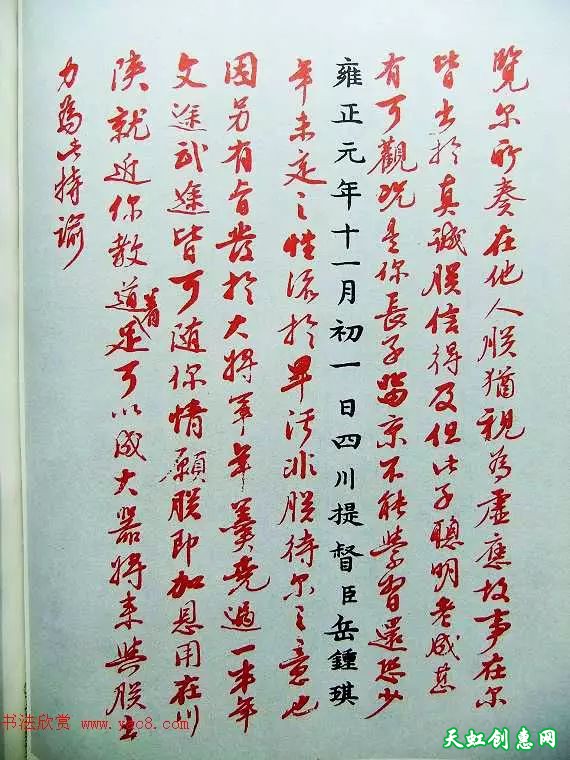 覽尔所奏在他人朕猶視為虛應故事在尔
皆出於真誠朕信得及但此子聰明老成甚
有可觀況是你長子留京不能學習還恐少
雍正元年十一月初一日四川提督臣岳鍾琪
年未定之性流於卑污非朕待尔之意也
因另有旨發於大將軍年羹堯過一半年
文途武途皆可随你情願朕即加恩用在川
陝就近你教道着足可以成大器將來與朕出
力為此特諭
书法欣赏 www.yac8.com
天虹创惠网